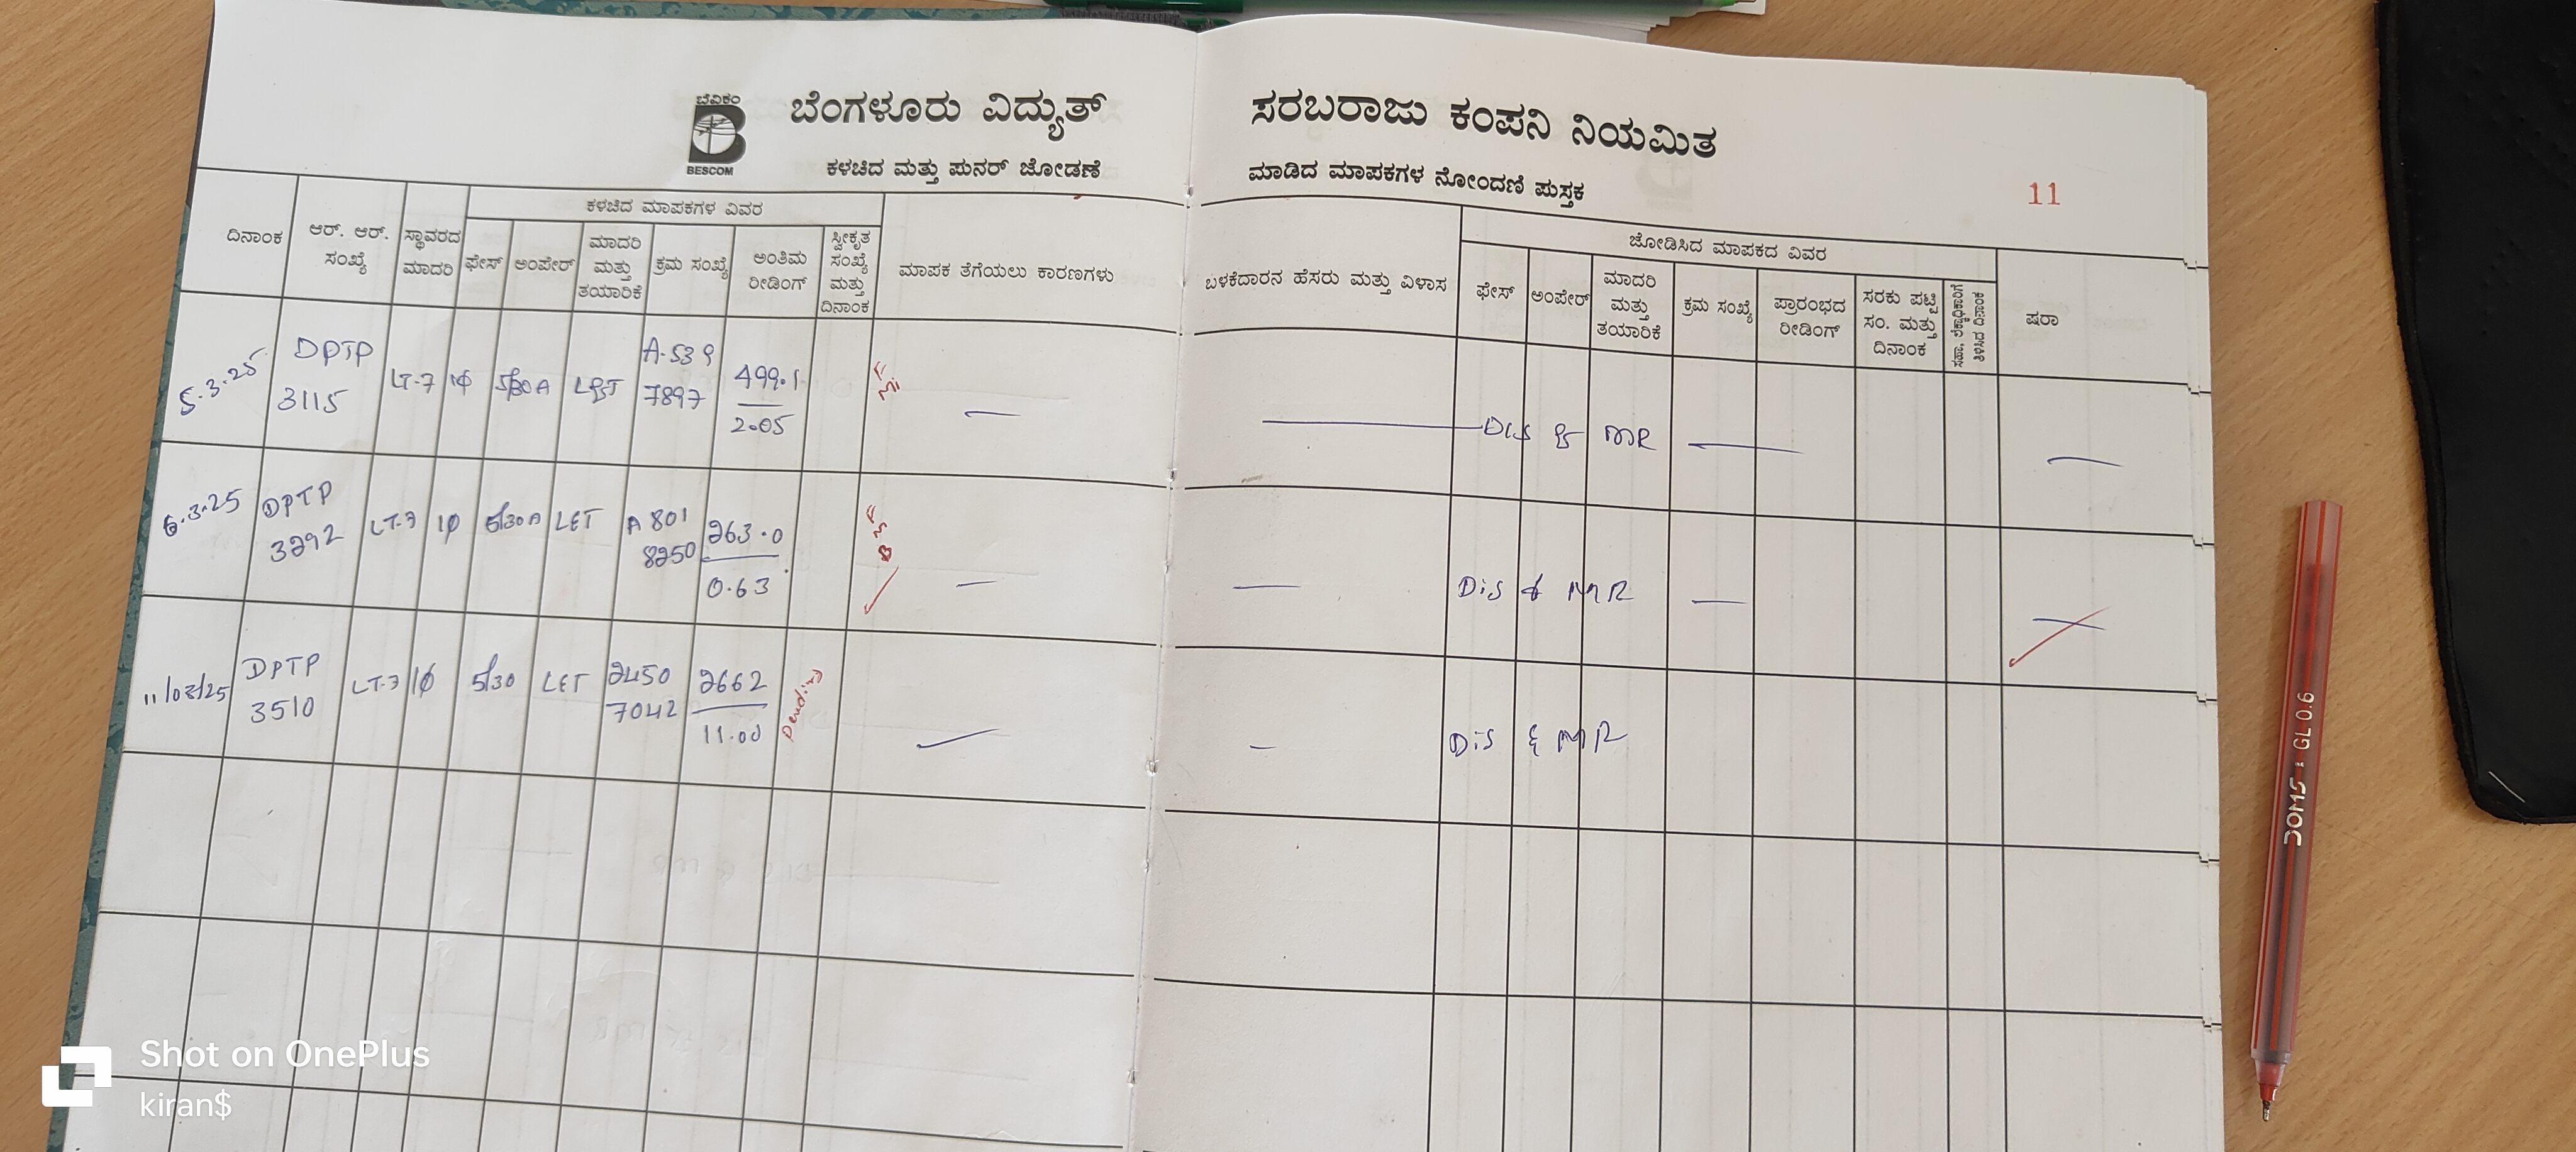 ಬೆವಿಕಂ
BESCOM
ಬೆಂಗಳೂರು ವಿದ್ಯುತ್ ಸರಬರಾಜು ಕಂಪನಿ ನಿಯಮಿತ
ಕಳಚಿದ ಮತ್ತು ಪುನರ್ ಜೋಡಣೆ ಮಾಡಿದ ಮಾಪಕಗಳ ನೋಂದಣಿ ಪುಸ್ತಕ
11
ದಿನಾಂಕ
ಆರ್. ಆರ್.
ಸಂಖ್ಯೆ
ಸ್ಥಾವರದ
ಮಾದರಿ
ಕಳಚಿದ ಮಾಪಕಗಳ ವಿವರ
ಫೇಸ್
ಅಂಪೇರ್
ಮಾದರಿ
ಮತ್ತು
ತಯಾರಿಕೆ
ಕ್ರಮ ಸಂಖ್ಯೆ
ಅಂತಿಮ
ರೀಡಿಂಗ್
ಸ್ವೀಕೃತ
ಸಂಖ್ಯೆ
ಮತ್ತು
ದಿನಾಂಕ
ಮಾಪಕ ತೆಗೆಯಲು ಕಾರಣಗಳು
ಬಳಕೆದಾರನ ಹೆಸರು ಮತ್ತು ವಿಳಾಸ
ಜೋಡಿಸಿದ ಮಾಪಕದ ವಿವರ
ಫೇಸ್
ಅಂಪೇರ್
ಮಾದರಿ
ಮತ್ತು
ತಯಾರಿಕೆ
ಕ್ರಮ ಸಂಖ್ಯೆ
ಪ್ರಾರಂಭದ
ರೀಡಿಂಗ್
ಸರಕು ಪಟ್ಟಿ
ಸಂ. ಮತ್ತು
ದಿನಾಂಕ
ಷರಾ
5.3.25
DPTP
3115
LT-7
1φ
5/30A
L&T
A-539
7897
499.1
2.05
Dis & MR
6.3.25
DPTP
3292
LT-7
1φ
5/30A
LET
A 801
8250
263.0
0.63
Dis & MR
11/03/25
DPTP
3510
LT-7
1φ
5/30
LET
2450
7042
2662
11.00
Pending
Dis & MR
DOMS GL 0.6
Shot on OnePlus
kiran$